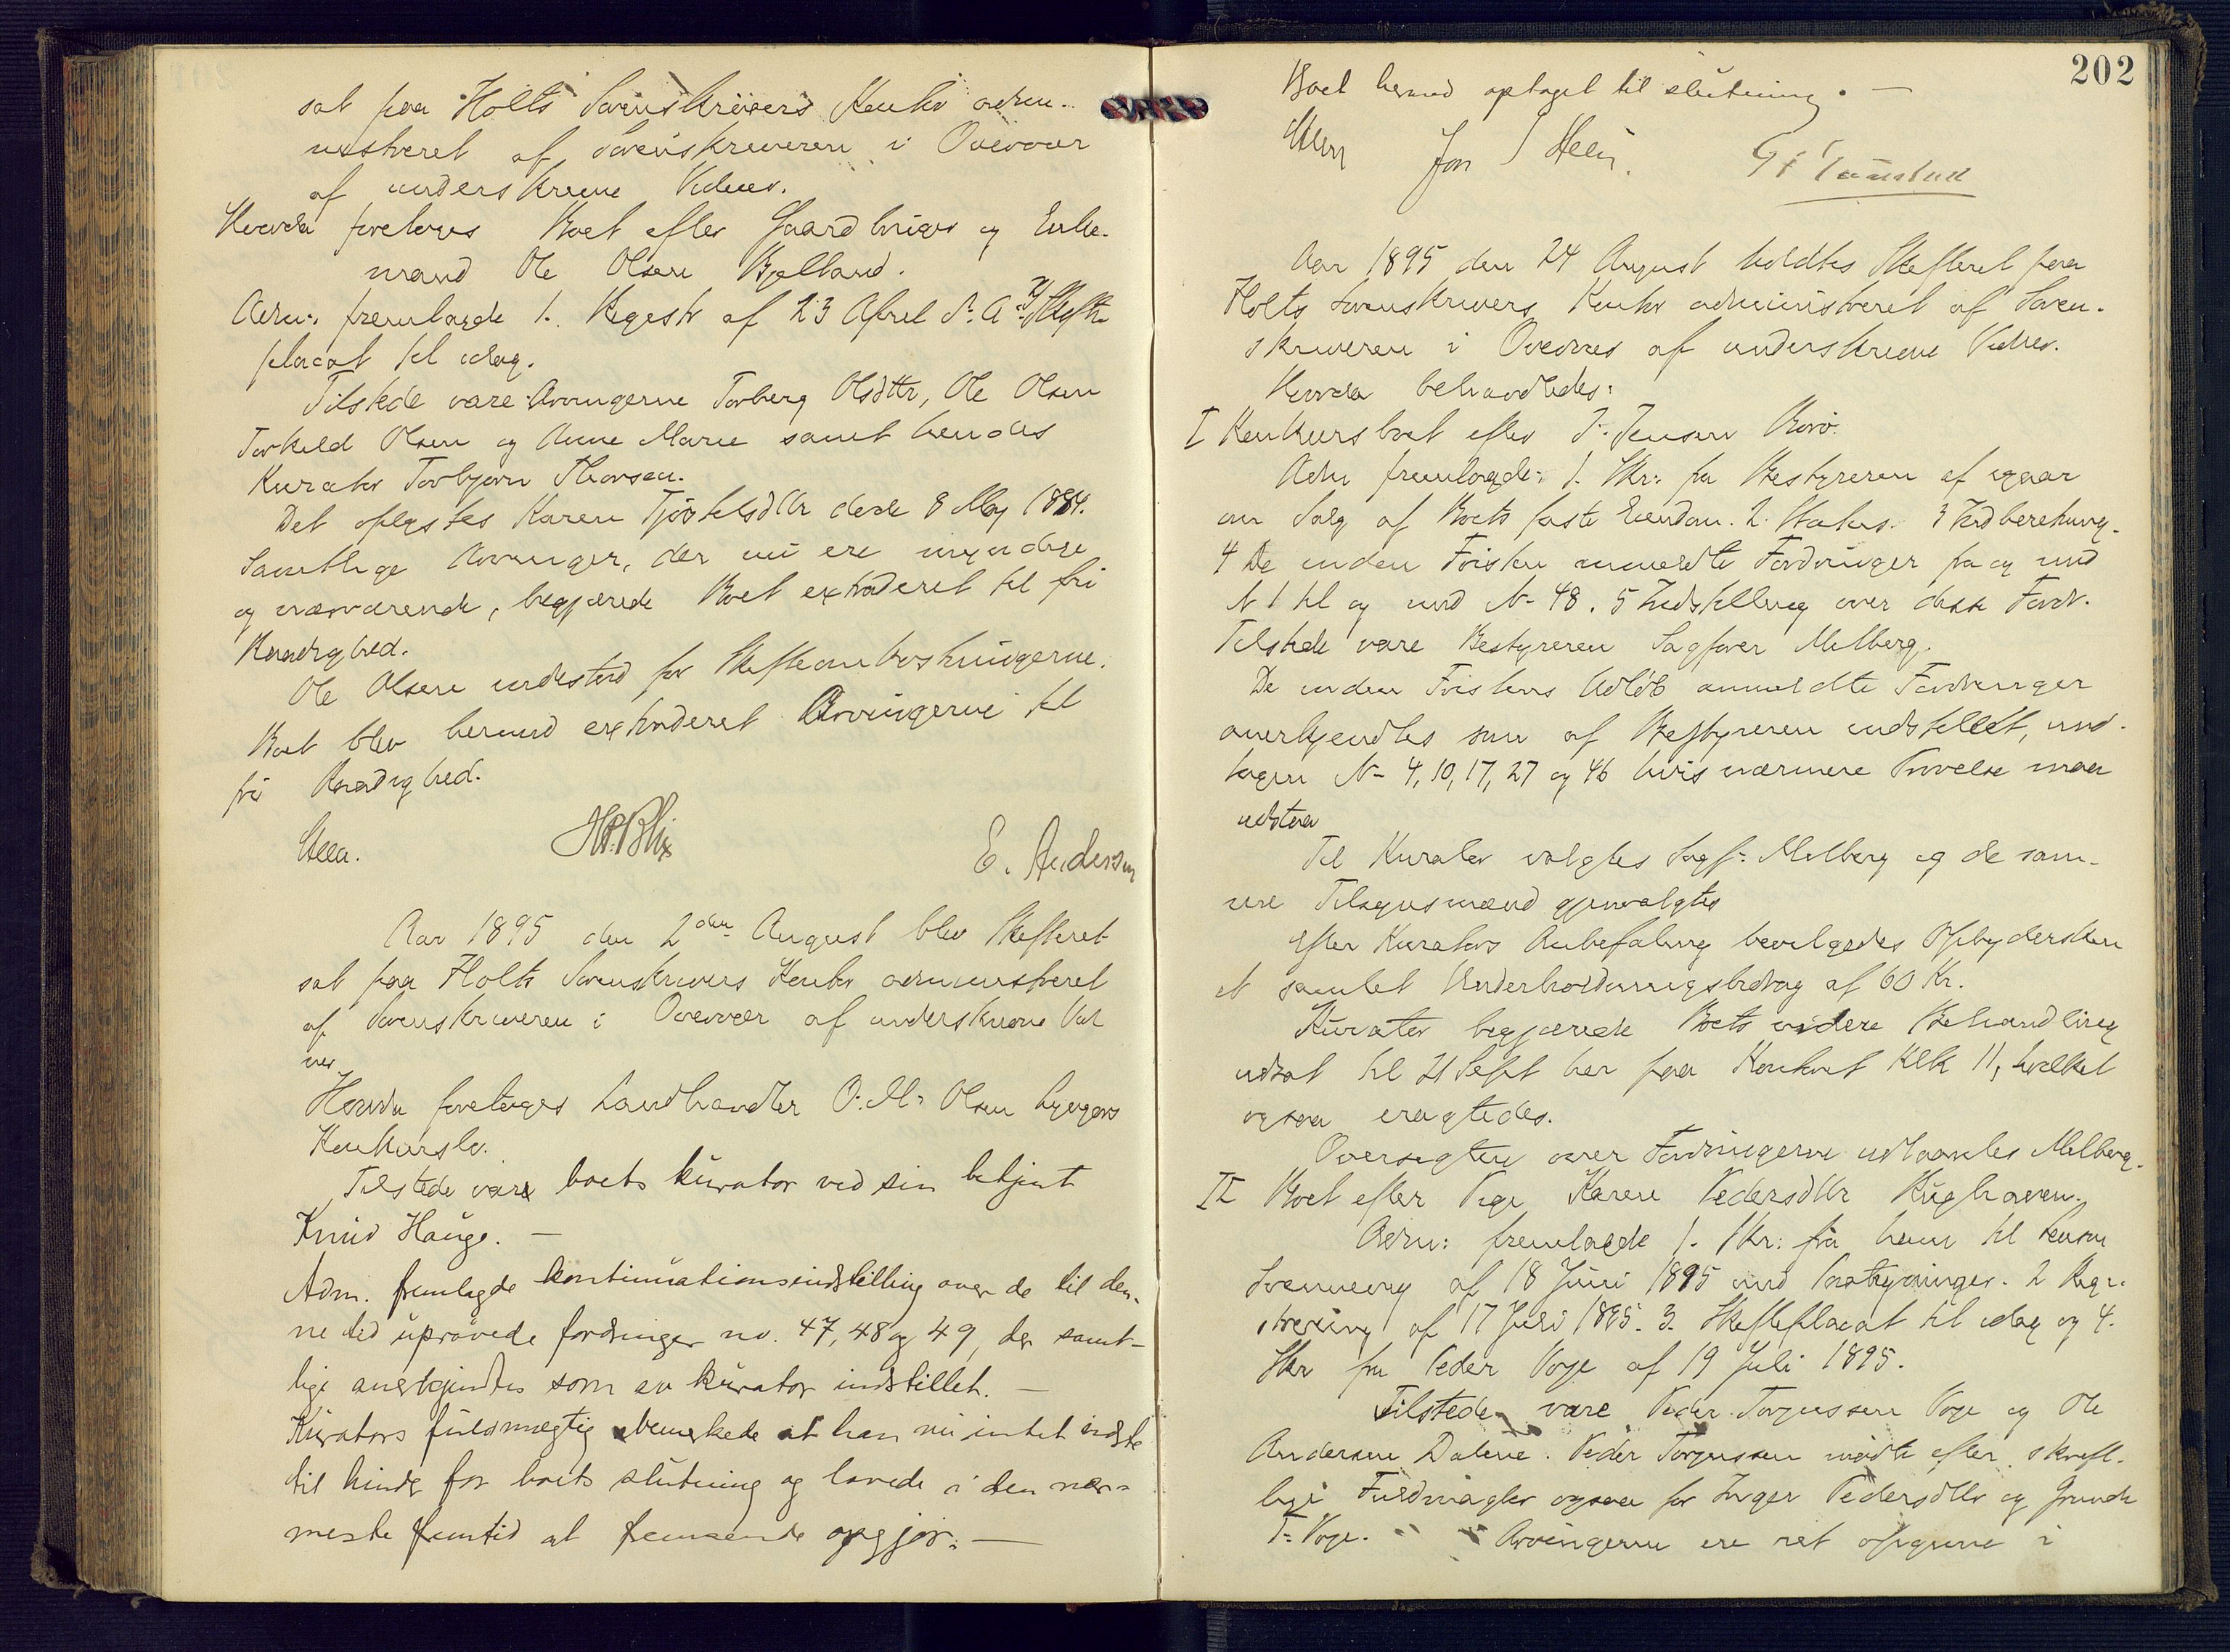 sat paa Holts Sorenskrivers Kontor admi-
nistreret af Sorenskriveren i Overvær
af underskrevne Vidner.
Hvorda foretoges Boet efter Gaardbruger og Enke-
mand Ole Olsen Bjelland.
Adm: fremlagde 1. Registr af 23 April d. A. 2) Skifte
placat til idag.
Tilstede vare Arvingerne Torberg Olsdttr, Ole Olsen
Torkild Olsen og Anne Marie samt hendes
Kurator Torbjørn Thorsen.
Det oplystes Karen Tjøstelsdttr døde 8 Maj 1884.
Samtlige Arvinger, der nu ere myndige
og nærværende, begjærede Boet extraderet til fri
Raadighed.
Ole Olsen indestod for Skifteomkostningerne.
Boet blev hermed extraderet Arvingerne til
fri Raadighed.
Steen. H.P. Blix E. Andersen
Aar 1895 den 2den August blev Skifteret
sat paa Holts Sorenskrivers Kontor administreret
af Sorenskriveren i Overvær af underskrevne Vid
ner
Hvorda foretoges Landhandler O. M. Olsen Lyngørs
Konkursbo.
Tilstede vare boets kurator ved sin betjent
Knud Hauge. —
Adm. fremlagde kontinuationsindstilling over de til den-
ne tid uprøvede fordringer no. 47, 48 og 49, der samt-
lige anerkjendtes som av kurator indstillet. —
Kurators fuldmægtig bemerkede at han nu intet vidste
til hinder for boets slutning og lovede i den nær-
meste fremtid at fremsende opgjør. —
202
Boet hermed optaget til slutning. —
Steen Jon
Aar 1895 den 24 August holdtes Skifteret paa
Holts Sorenskrivers Kontor administreret af Soren-
skriveren i Overvær af underskrevne Vidner.
Hvorda behandledes:
I Konkursboet efter J. Jensen Borø.
Adm fremlagde: 1. Skr: fra Bestyreren af igaar
om Salg af Boets faste Eiendom. 2. Status. 3 Indberetning.
4 De inden Fristen anmeldte Fordringer fra og med
N 1 til og med N- 48. 5 Indstilling over disse Fordr.
Tilstede vare Bestyreren Sagfører Melberg.
De inden Fristens Udløb anmeldte Fordringer
anerkjendtes som af Bestyreren indstillet, und-
tagen N- 4, 10, 17, 27 og 46 hvis nærmere Prøvelse maa
udstaa
Til Kurator valgtes Sagf: Melberg og de sam-
me Tilsynsmænd gjenvalgtes
Efter Kurators Anbefaling bevilgedes Opbydersken
et samlet Underholdningsbidrag af 60 Kr.
Kurator begjærede Boets videre Behandling
udsat til 21 Sept her paa Kontoret Klk 11, hvilket
ogsaa eragtedes.
Oversigten over Fordringerne udlaantes Melberg.
II Boet efter Pige Karen Pedersdttr Rughaven.
Adm: fremlagde 1. Skr: fra ham til
af 18 Juni 1895 med Paategninger. 2 Regi-
strering af 17 Juli 1895. 3. Skifteplacat til idag og 4.
Skr fra Peder Voje af 19 Juli 1895.
Tilstede vare Peder Torjussen Voje og Ole
Andersen Dalene. Peder Torjussen mødte efter skrift-
lige Fuldmagter ogsaa for Inger Pedersdttr og Gunde
T. Voje. Arvingerne ere ret opgivne i